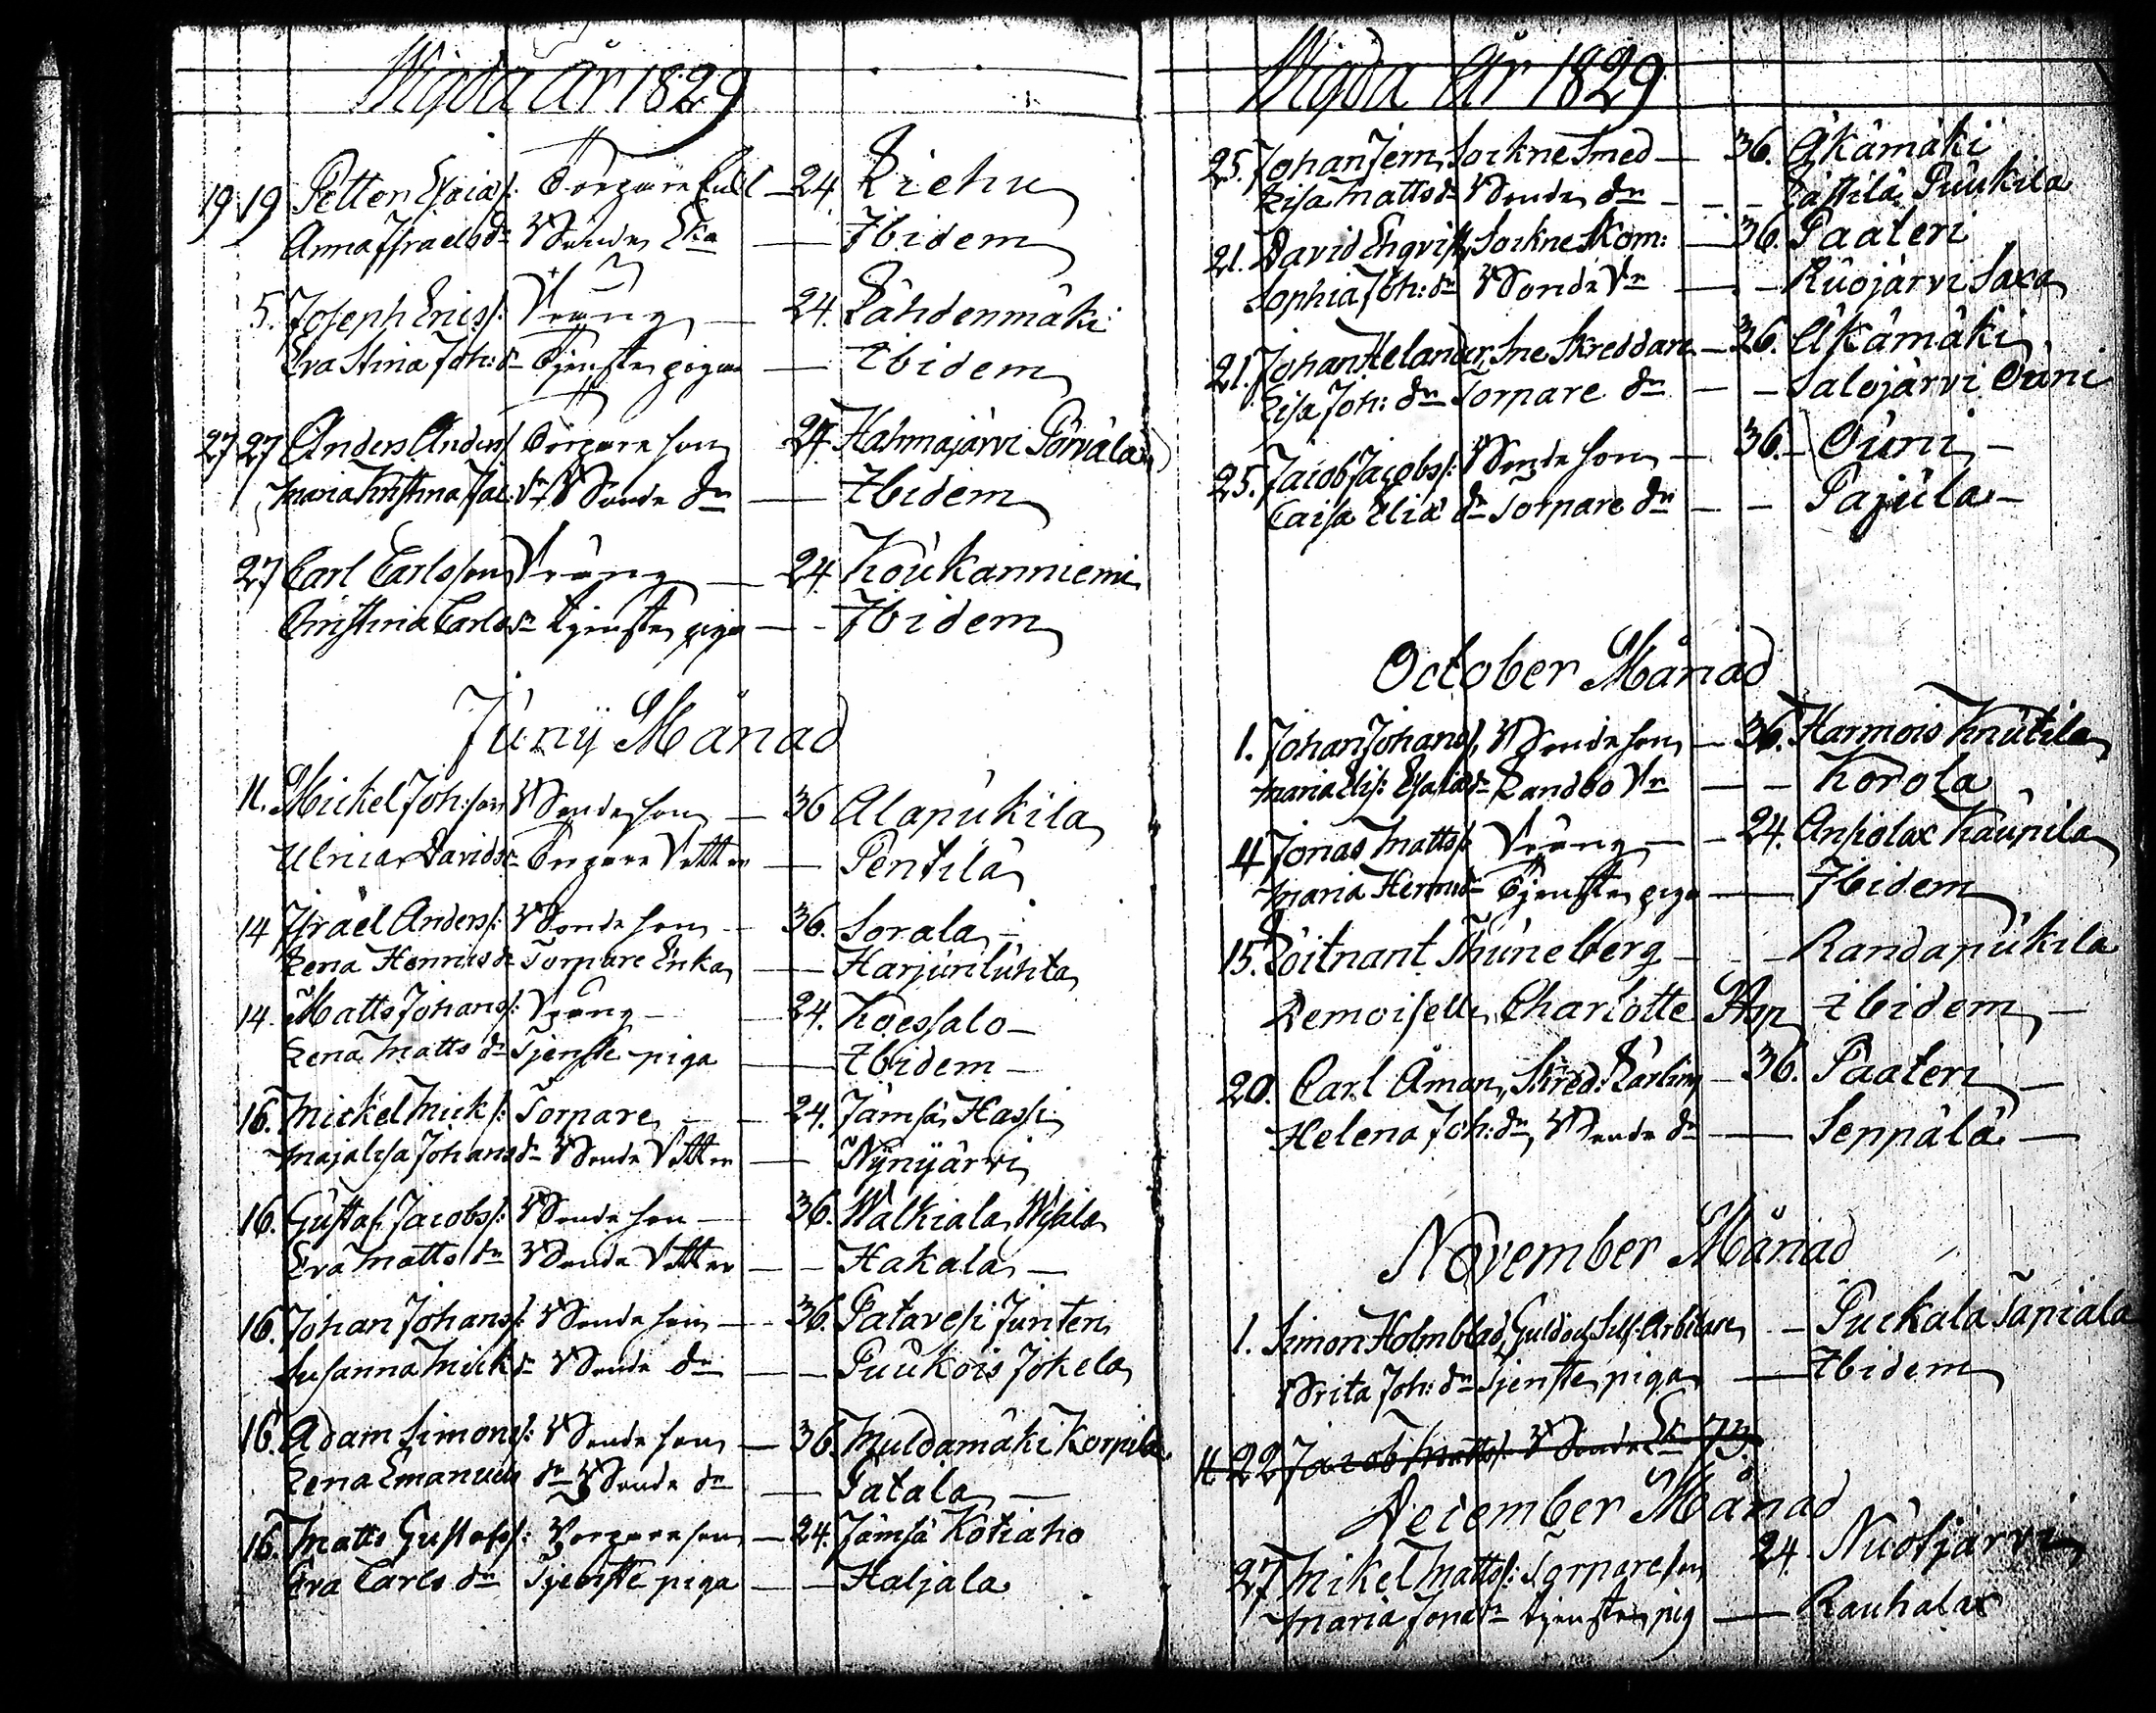 Wigda år 1829
19 19 Petter Esaias: Torpare Enkl 24. Riehu
Anna Israelsdr Bonde Eka — Ibidem
5. Joseph Erics: Dräng — 24. Lähdenmäki
Eva Stina Joh: dr Tjenste pigan — Ibidem
27 27 Anders Anders: Torpare son 24. Halmajärvi Pärvälä
Maria Christina Jac: dr Bonde dr — Ibidem
27 Carl Carlsson Dräng — 24. Koukanniemi
Christina Carlsdr tjenste piga — Ibidem
Junij Månad
11. Mickel Joh:son Bonde son — 36 Alapukila
Ulrica Davidsdr Torpare Dotter — Pentilä
14 Israel Anders: Bonde son — 36. Sorala —
Lena Henricsdr Torpare Enka — Harjunluhta
14. Matts Johans: Dräng — 24. Koessalo —
Lena Matts dr Tjenste piga — Ibidem —
16. Mickel Mick: Torpare — 24. Jämsä Hassi
Majalisa Johansdr Bonde Dotter — Nynyärvi
16. Gustaf Jacobs: Bonde son — 36. Walkiala
Eva Matts dr Bonde Dotter — Hakala —
16. Johan Johans: Bonde son — 36. Patavesi Junteri
Susanna Mick dr Bonde dr — Puukois Jokela
16. Adam Simons: Bonde son — 36. Muldamäki Korpila
Lena Emanuels dr Bonde dr — Patala —
16. Matts Gustafs: Torpare son — 24. Jämsä Kotiaho
Eva Carls dr Tjenste piga — Haljala
Wigda År 1829
25. Johan Jern, Sockne Smed — 36. Äkämäki
Lisa Matts dr Bonde dr — Pättilä Puukila
21. David Enqvist, Sockne Skom: — 36. Paateri
Sophia Joh: dr Bonde Dr — Ruojärvi Saxa
21. Johan Helander, Sne Skreddare — 36. Äkämäki
Lisa Joh: dr Torpare dr — Salojärvi Ouni
25. Jacob Jacobs: Bonde son — 36. Ouni —
Caisa Elia dr Torpare dr — Pajula —
October Månad
1. Johan Johans: Bonde son — 36. Harmois Knutila
Maria Elis: Esaiadr Landbo Dr — Korola
4 Jonas Matts: Dräng — 24. Ansiolax Kaupila
Maria Hermdr Tjenste piga — Ibidem
15. Löitnant Thuneberg — Randapukila
Demoiselle Charlotte Asp ibidem —
20. Carl Åman, Skred: Lärling — 36. Paateri —
Helena Joh: dr, Bonde dr — Seppälä —
November Månad
1. Simon Holmblad, Guld och Silf: Arbetare — Puckala Tapiala
Brita Joh: dr Tjenste piga — Ibidem
11 22 Jacob Matts: Bonde Ek 73.
December Månad
27 Mikel Matts: Torpare son 24. Nuotjärvi
Maria Jonadr tjenste pig — Rauhalax